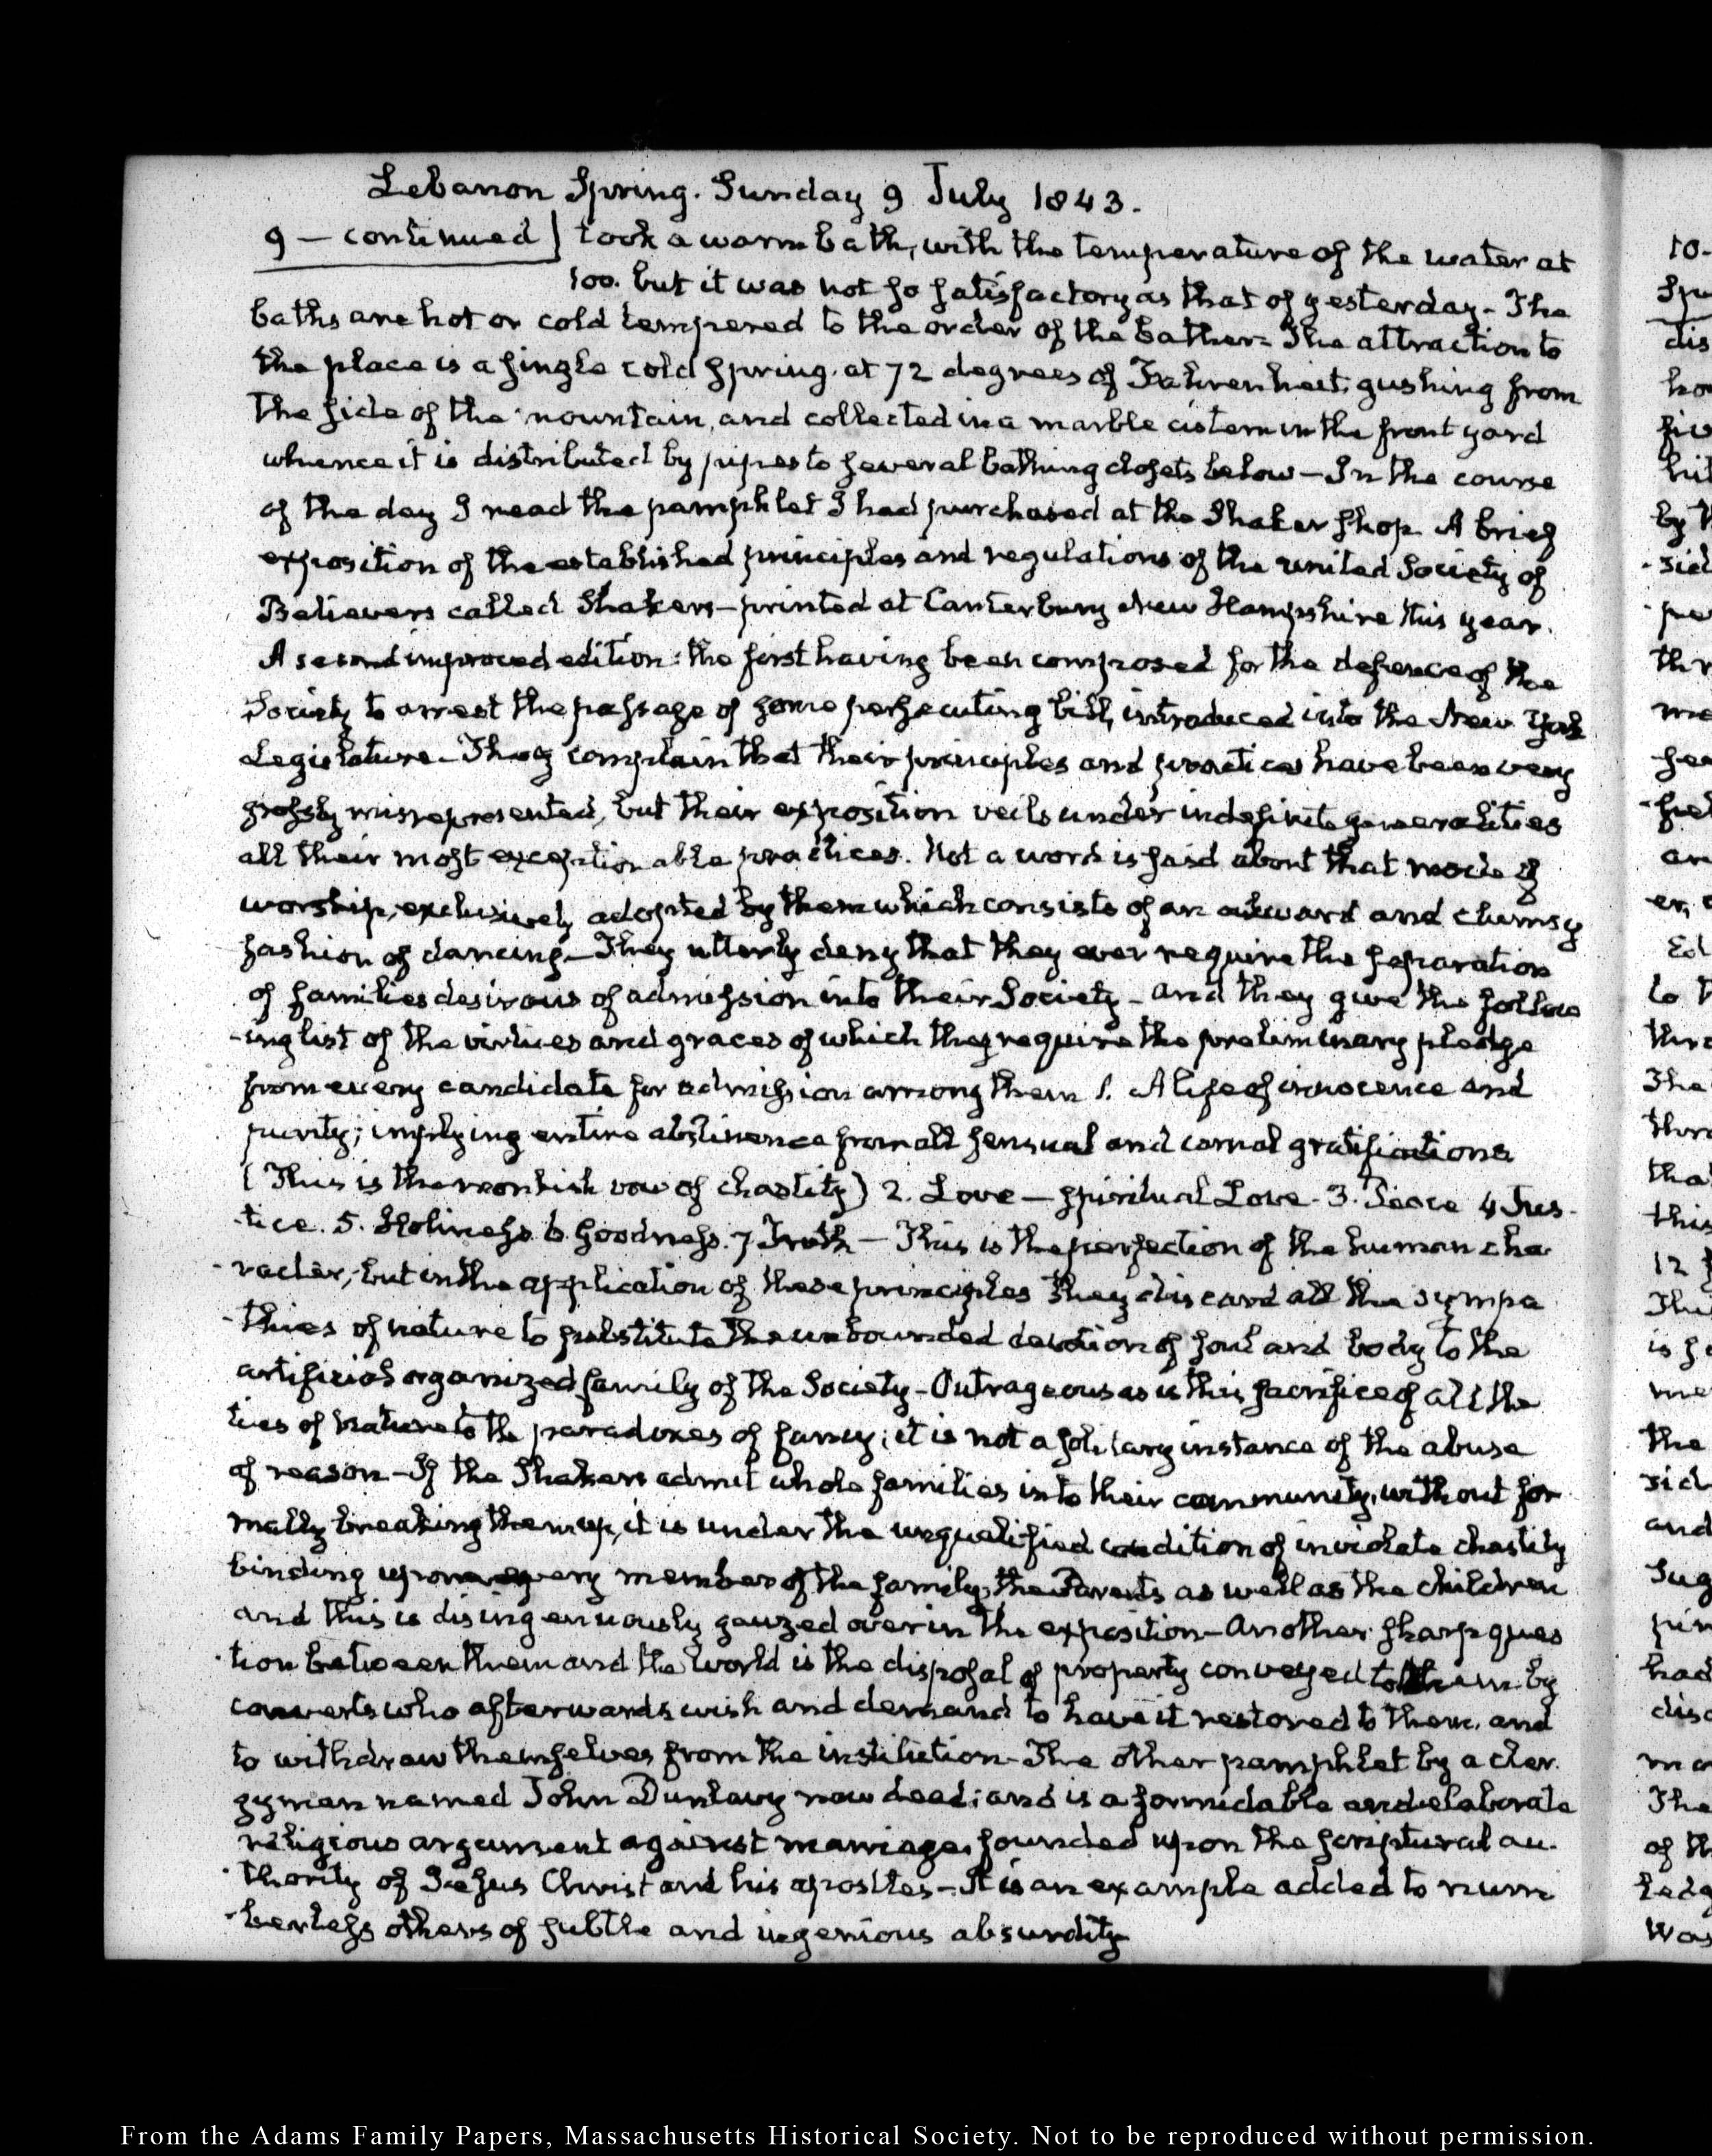 Lebanon Spring. Sunday 9 July 1843.
9 — continued} took a warm bath, with the temperature of the water at
100. but it was not so satisfactory as that of yesterday - The
baths are hot or cold tempered to the order of the bather - The attraction to
the place is a single cold spring. at 72 degrees of Fahrenheit, gushing from
the side of the mountain, and collected in a marble cistern in the front yard
whence it is distributed by pipes to several bathing closets below — In the course
of the day I read the pamphlet I had purchased at the Shaker shop. A brief
exposition of the established principles and regulations of the united Society of
Believers called Shakers — printed at Canterbury New Hampshire this year.
A second improved edition: the first having been composed for the defence of the
Society to arrest the passage of some persecuting bill, introduced into the New York
Legislature - They complain that their principles and practices have been very
grossly misrepresented, but their exposition veils under indefinite generalities
all their most exceptionable practices. Not a word is said about that mode of
worship, exclusively adopted by them which consists of an awkward and clumsy
fashion of dancing — They utterly deny that they ever require the separation
of families desirous of admission into their Society - and they give the follow
-ing list of the virtues and graces of which they require the preliminary pledge
from every candidate for admission among them 1. A life of innocence and
purity; implying entire abstinence from all sensual and carnal gratifications
(This is the monkish vow of chastity) 2. Love — spiritual Love - 3. Peace 4 Jus-
-tice. 5. Holiness. 6. Goodness. 7 Truth — This is the perfection of the human cha-
-racter, but in the application of these principles they discard all the sympa
-thies of nature to substitute the unbounded devotion of soul and body to the
artificial organized family of the Society - Outrageous as is this sacrifice of all the
ties of Nature to the paradoxes of fancy; it is not a solitary instance of the abuse
of reason - If the Shakers admit whole families into their community, without for
mally breaking them up, it is under the unqualified condition of inviolate chastity
binding upon every member of the family, the Parents as well as the children
and this is disingenuously gauzed over in the exposition - another sharp ques
-tion between them and the World is the disposal of property conveyed to them by
converts who afterwards wish and demand to have it restored to them, and
to withdraw themselves from the institution - The other pamphlet by a cler-
gyman named John Dunlavy now dead; and is a formidable and elaborate
religious argument against marriage, founded upon the scriptural au-
-thority of Jesus Christ and his apostles - It is an example added to num
-berless others of subtle and ingenious absurdity
From the Adams Family Papers, Massachusetts Historical Society. Not to be reproduced without permission.